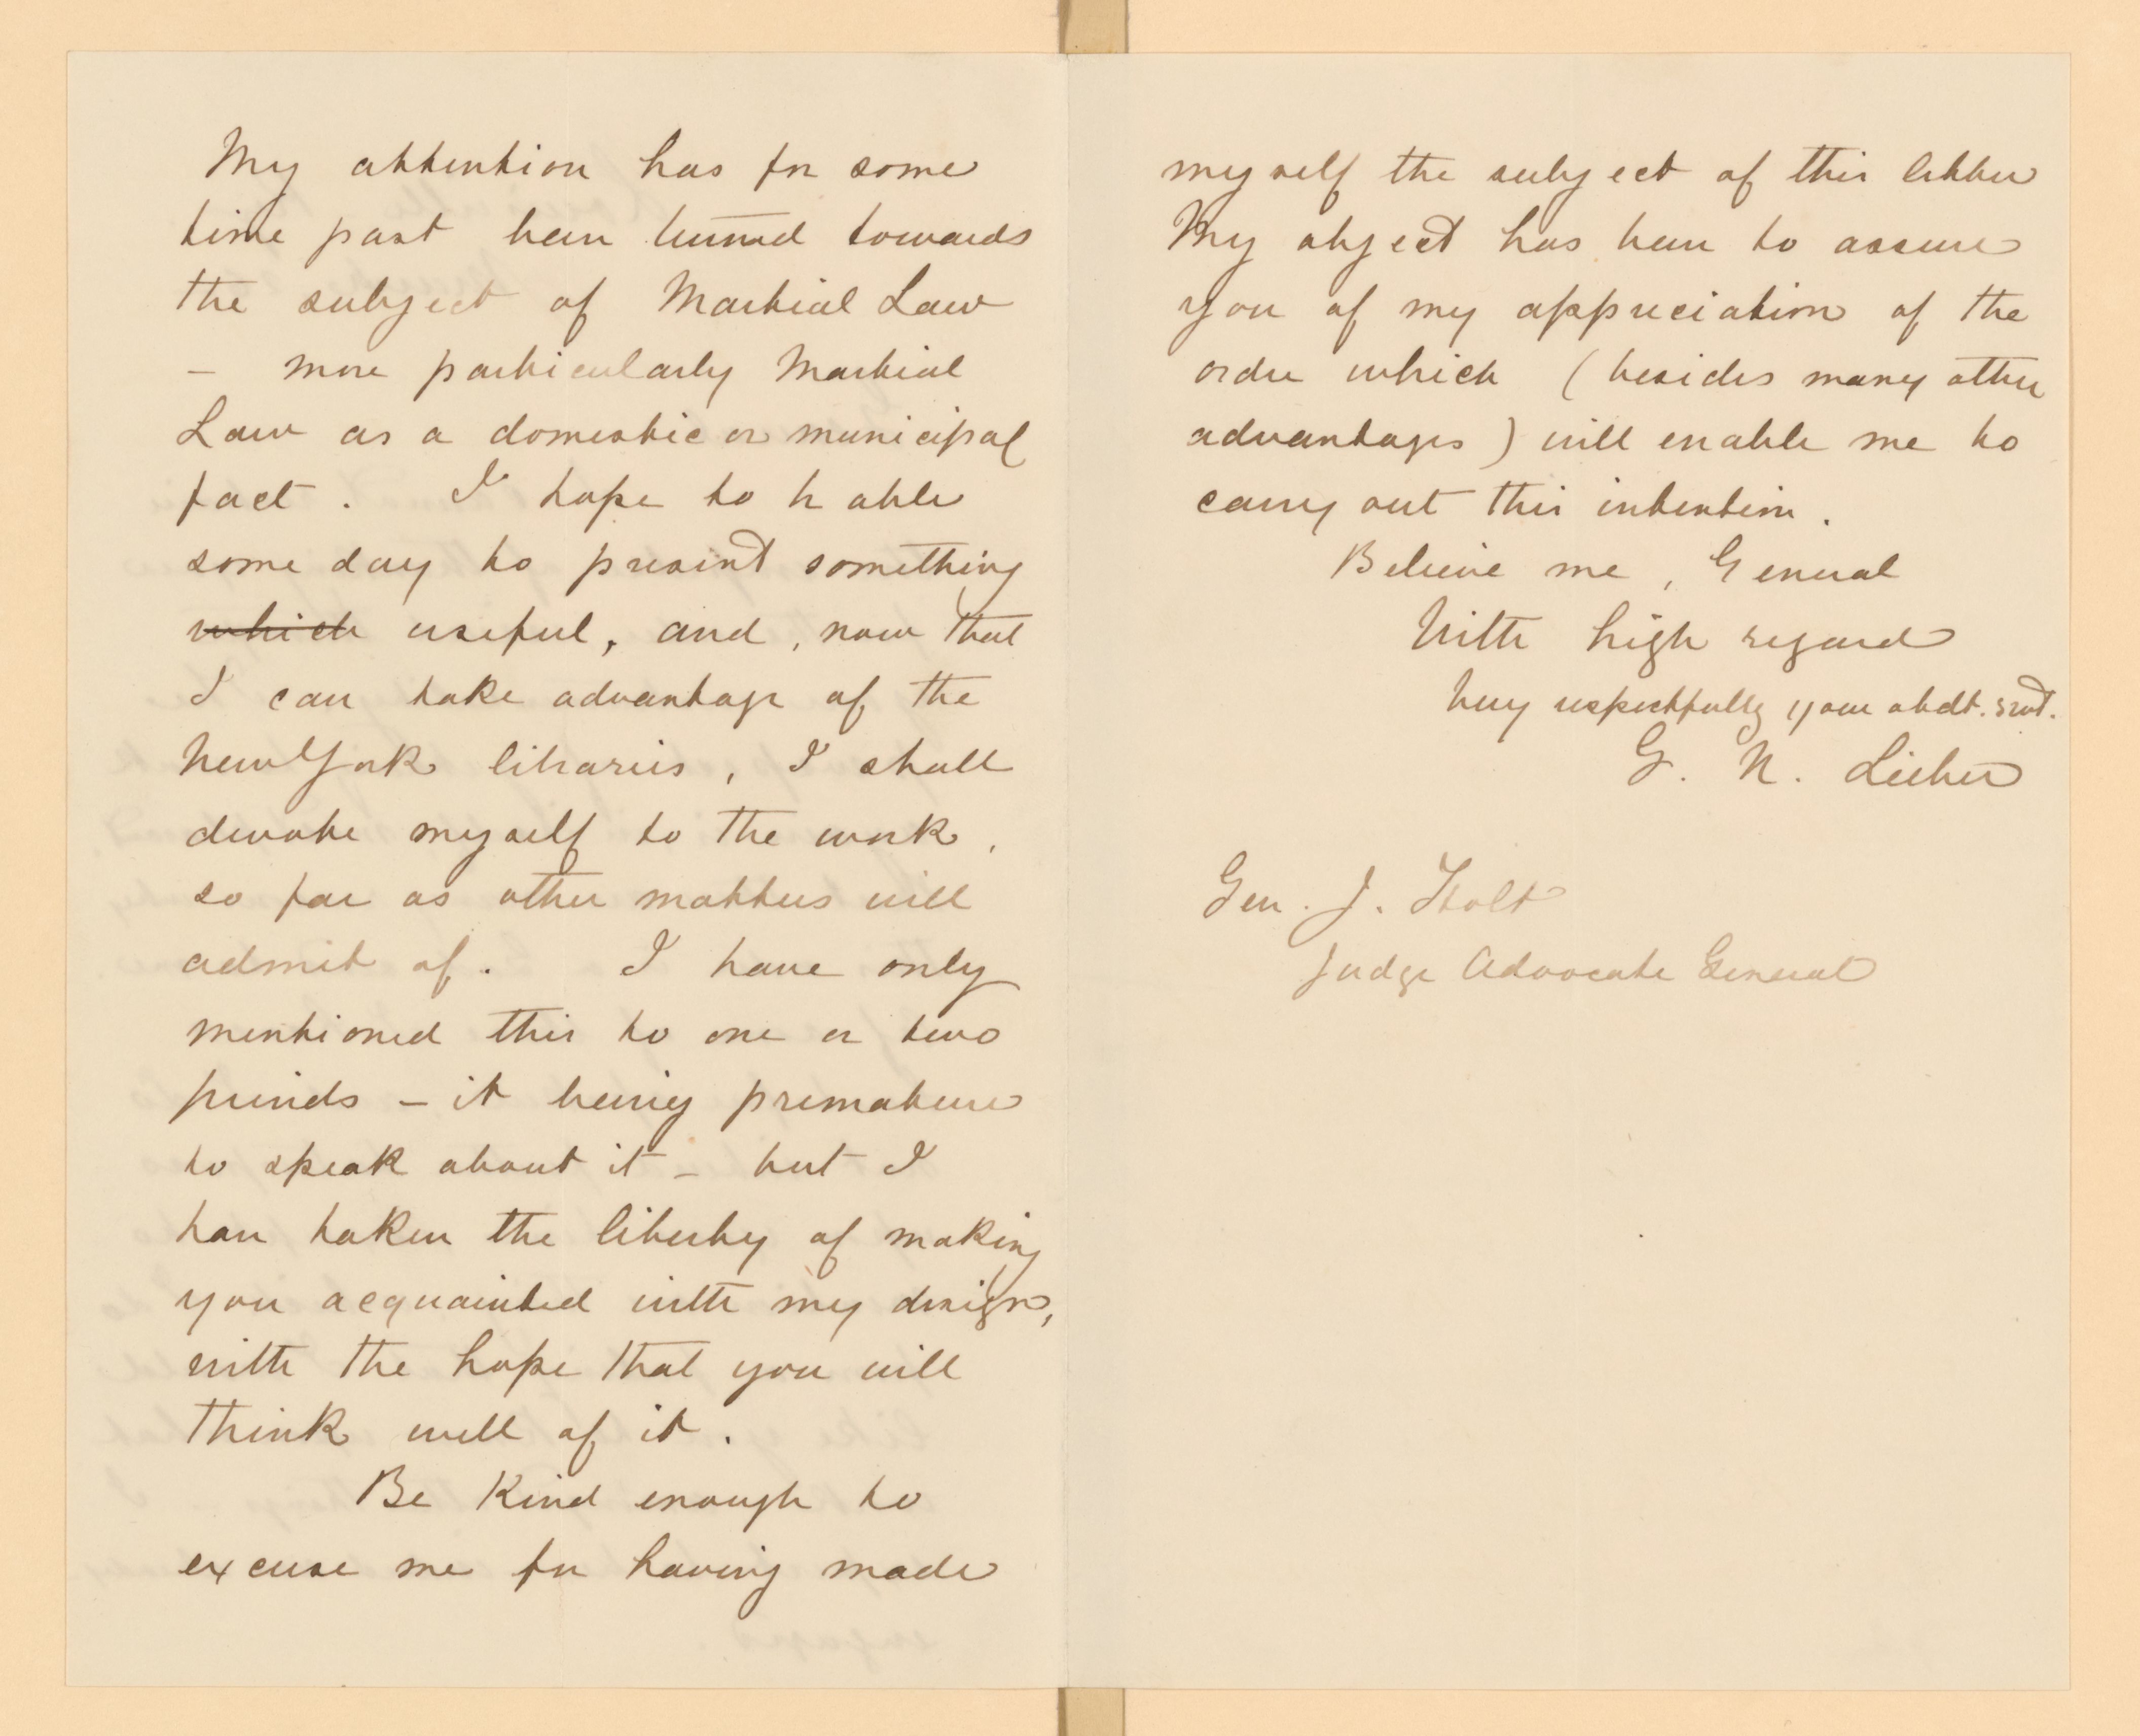 My attention has for some
time past been turned towards
the subject of Martial Law
— more particularly Martial
Law as a domestic or municipal
fact. I hope to be able
some day to present something
which useful, and, now that
I can take advantage of the
New York libraries, I shall
devote myself to the work,
so far as other matters will
admit of. I have only
mentioned this to one or two
friends — it being premature
to speak about it — but I
have taken the liberty of making
you acquainted with my design,
with the hope that you will
think well of it.
Be kind enough to
excuse me for having made
myself the subject of this letter
My object has been to assure
you of my appreciation of the
order which (besides many other
advantages) will enable me to
carry out this intention.
Believe me, General
With high regard
Very respectfully your obdt. srvt.
G. N. Lieber
Gen. J. Holt
Judge Advocate General